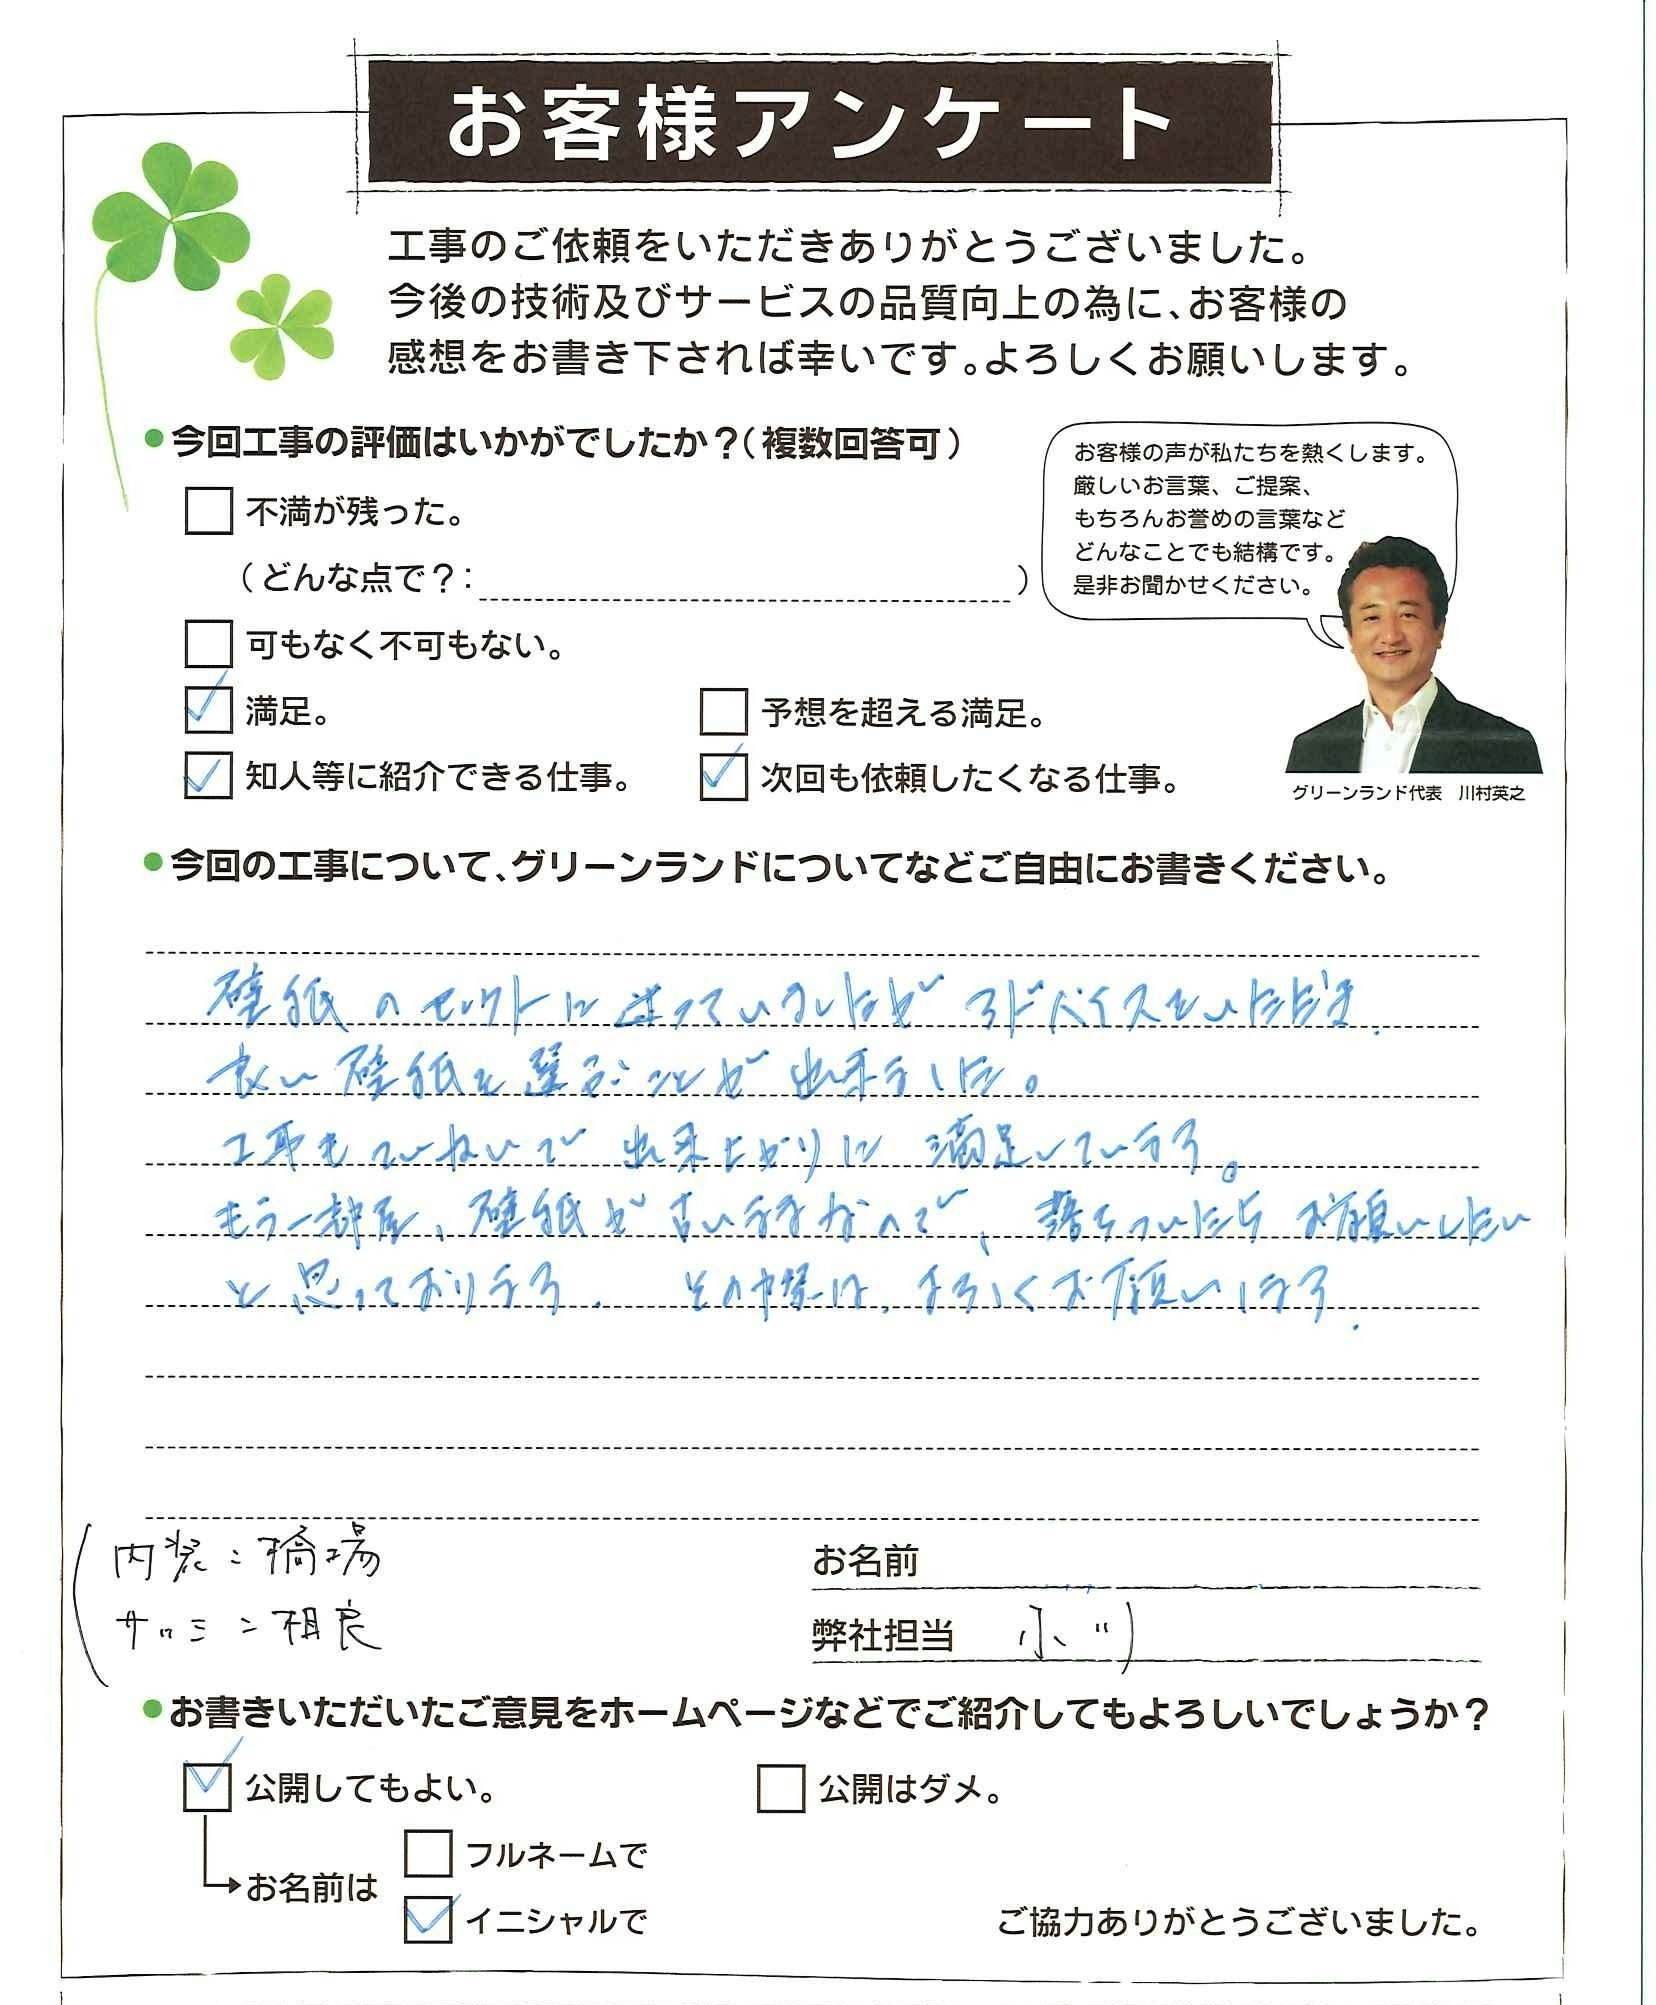 お客様アンケート
工事のご依頼をいただきありがとうございました。
今後の技術及びサービスの品質向上の為に、お客様の
感想をお書き下されば幸いです。よろしくお願いします。
●今回工事の評価はいかがでしたか？（複数回答可）
お客様の声が私たちを熱くします。
厳しいお言葉、ご提案、
もちろんお誉めの言葉など
どんなことでも結構です。
是非お聞かせください。
不満が残った。
（どんな点で？：　）
可もなく不可もない。
満足。
予想を超える満足。
知人等に紹介できる仕事。
次回も依頼したくなる仕事。
グリーンランド代表　川村英之
●今回の工事について、グリーンランドについてなどご自由にお書きください。
壁紙のセレクトに迷っていましたが アドバイスをいただき、
良い壁紙を選ぶことが出来ました。
工事もていねいで 出来上がりに 満足しています。
もう一部屋、壁紙が古い ますなので、落ちついたら お願いしたい
と思っております。 その際は、よろしくお願いします。
内装：橋場
サッシ：相良
お名前
弊社担当 小川
●お書きいただいたご意見をホームページなどでご紹介してもよろしいでしょうか？
公開してもよい。
公開はダメ。
お名前は
フルネームで
イニシャルで
ご協力ありがとうございました。